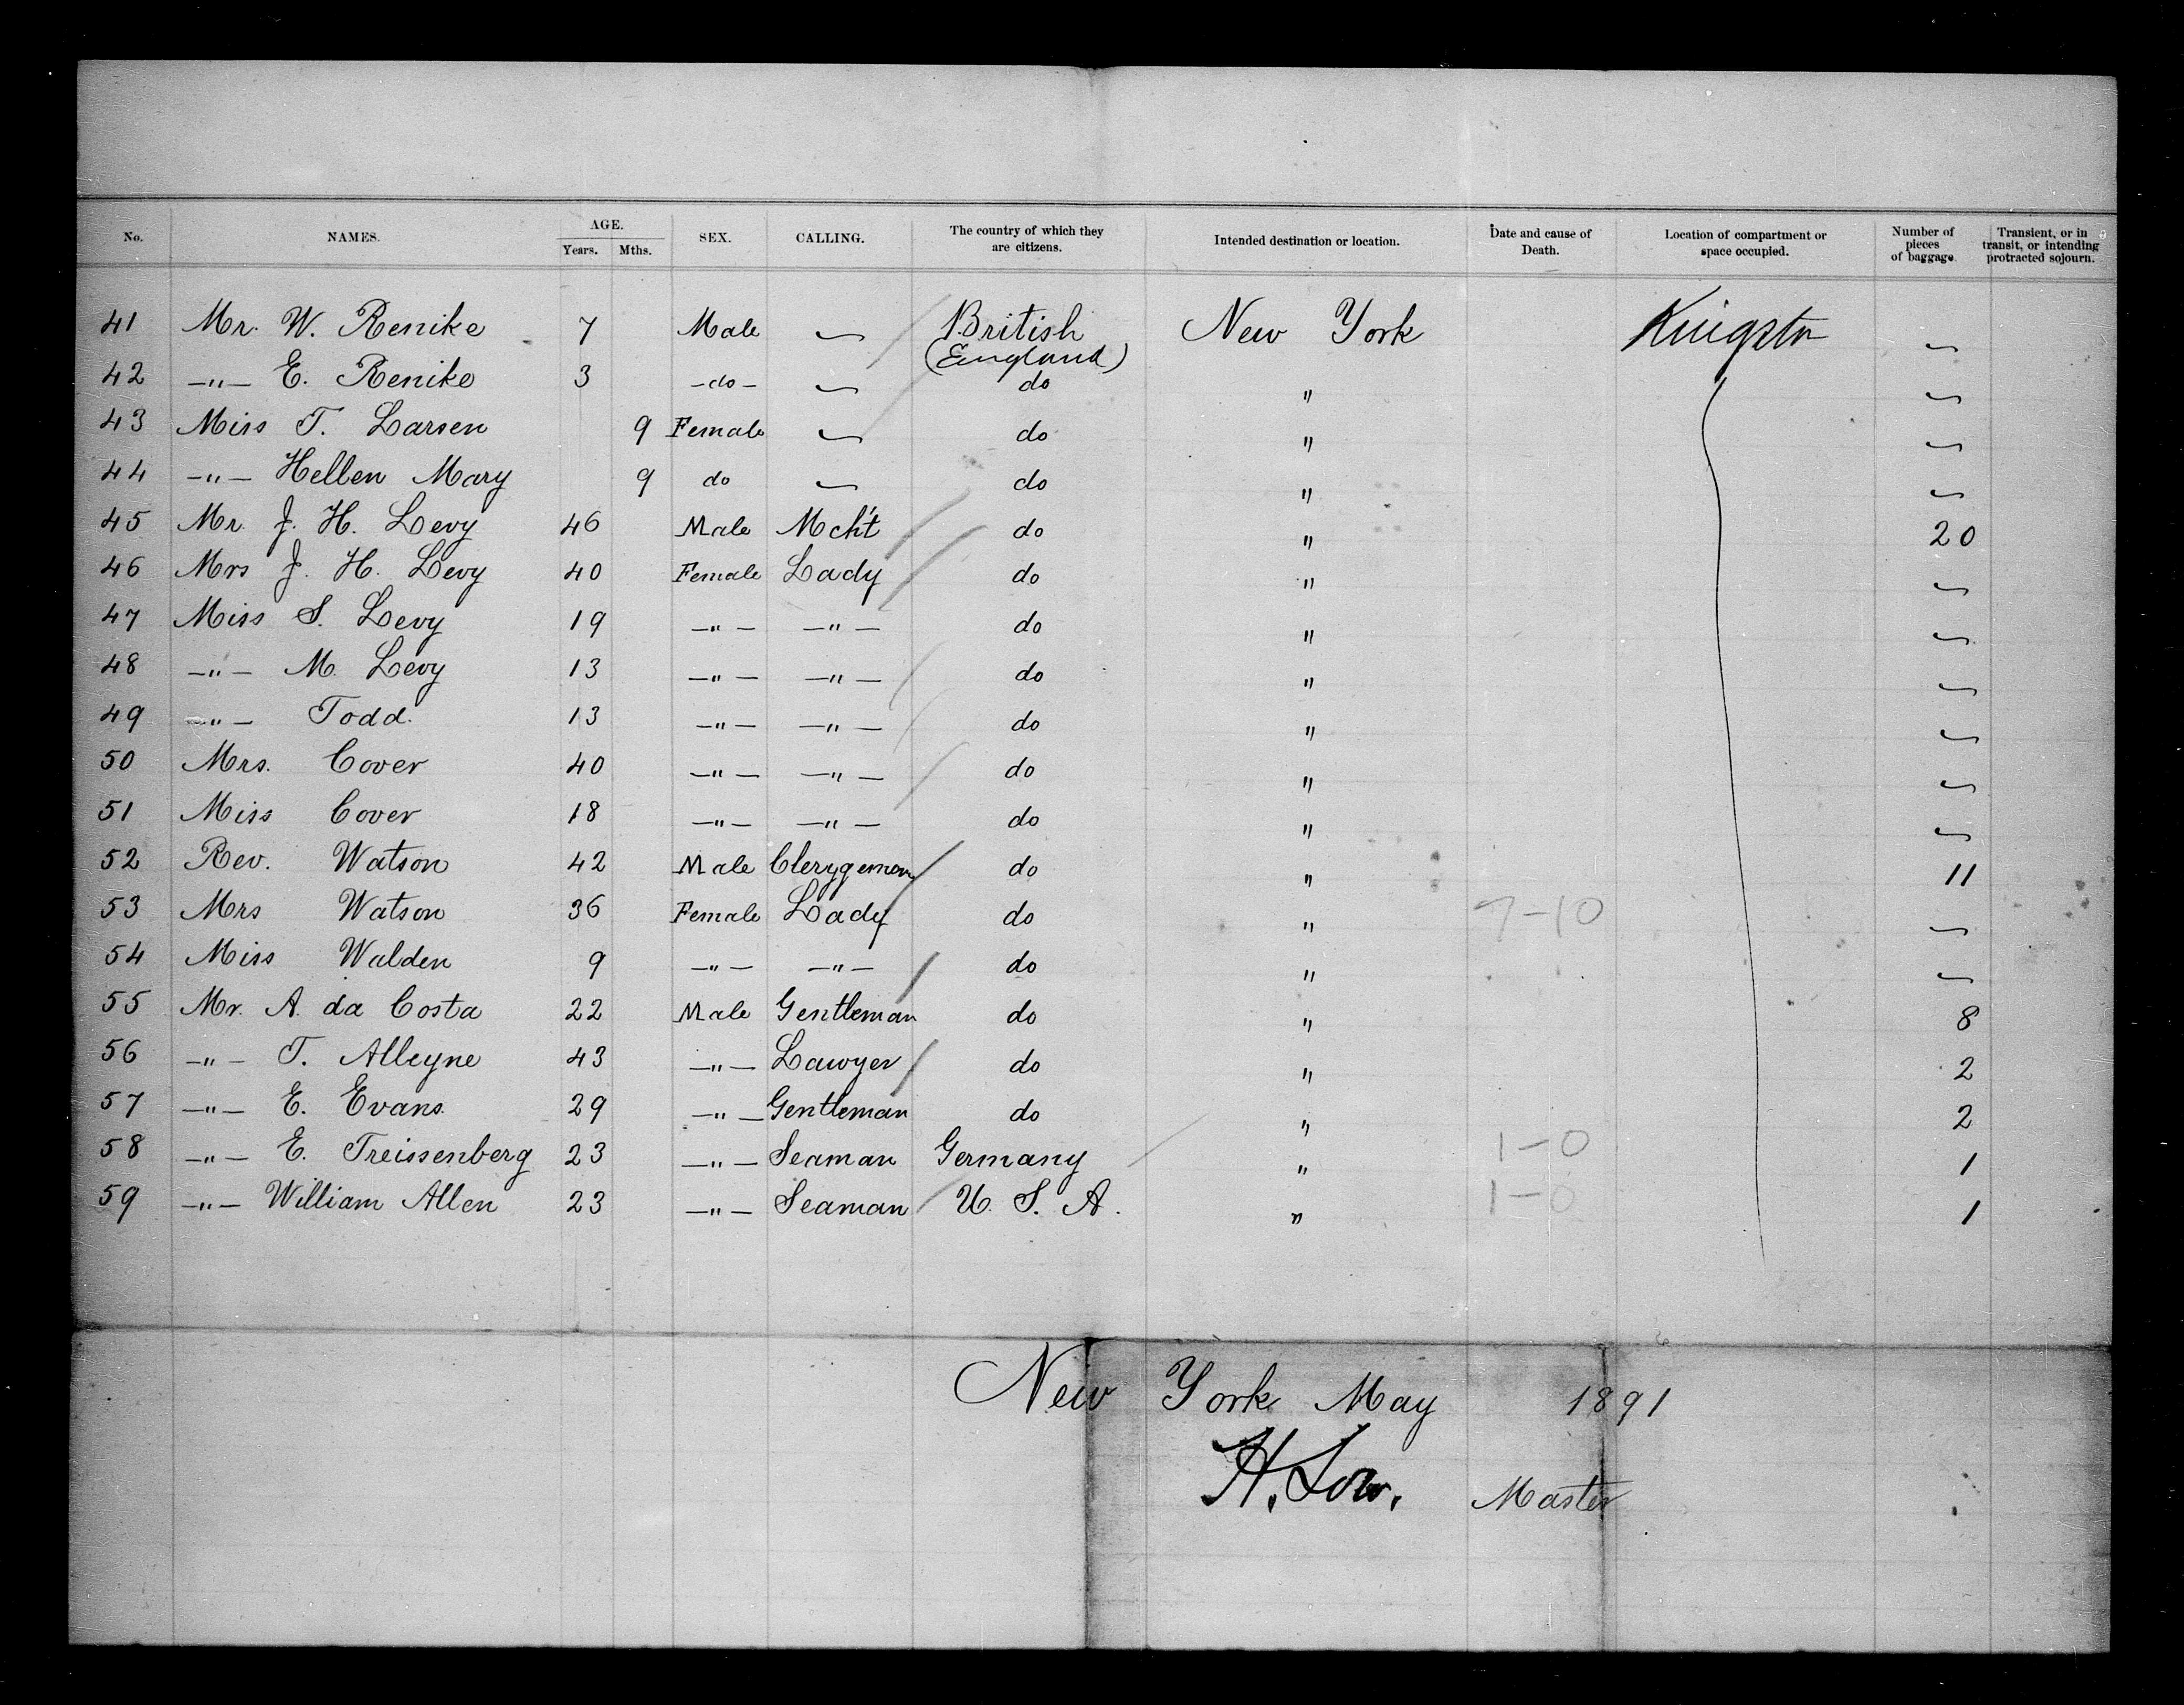 No. NAMES. AGE. Years. Mths. SEX. CALLING. The country of which they are citizens. Intended destination or location. Date and cause of Death. Location of compartment or space occupied. Number of pieces of baggage. Transient, or in transit, or intending protracted sojourn.
41 Mr. W. Renike 7 Male — British (England) New York Kingston —
42 —"— E. Renike 3 —do— — do " —
43 Miss T. Larsen 9 Female — do " —
44 —"— Hellen Mary 9 do — do " —
45 Mr. J. H. Levy 46 Male Mch't do " 20
46 Mrs J. H. Levy 40 Female Lady do " —
47 Miss S. Levy 19 —"— —"— do " —
48 —"— M. Levy 13 —"— —"— do " —
49 —"— Todd. 13 —"— —"— do " —
50 Mrs. Cover 40 —"— —"— do " —
51 Miss Cover 18 —"— —"— do " —
52 Rev. Watson 42 Male Clerygemen do " 11
53 Mrs Watson 36 Female Lady do " 7-10 —
54 Miss Walden 9 —"— —"— do " —
55 Mr. A. da Costa 22 Male Gentleman do " 8
56 —"— T. Alleyne 43 —"— Lawyer do " 2
57 —"— E. Evans. 29 —"— Gentleman do " 2
58 —"— E. Treissenberg 23 —"— Seaman Germany " 1-0 1
59 —"— William Allen 23 —"— Seaman U. S. A. " 1-0 1
New York May 1891
H. Low. Master